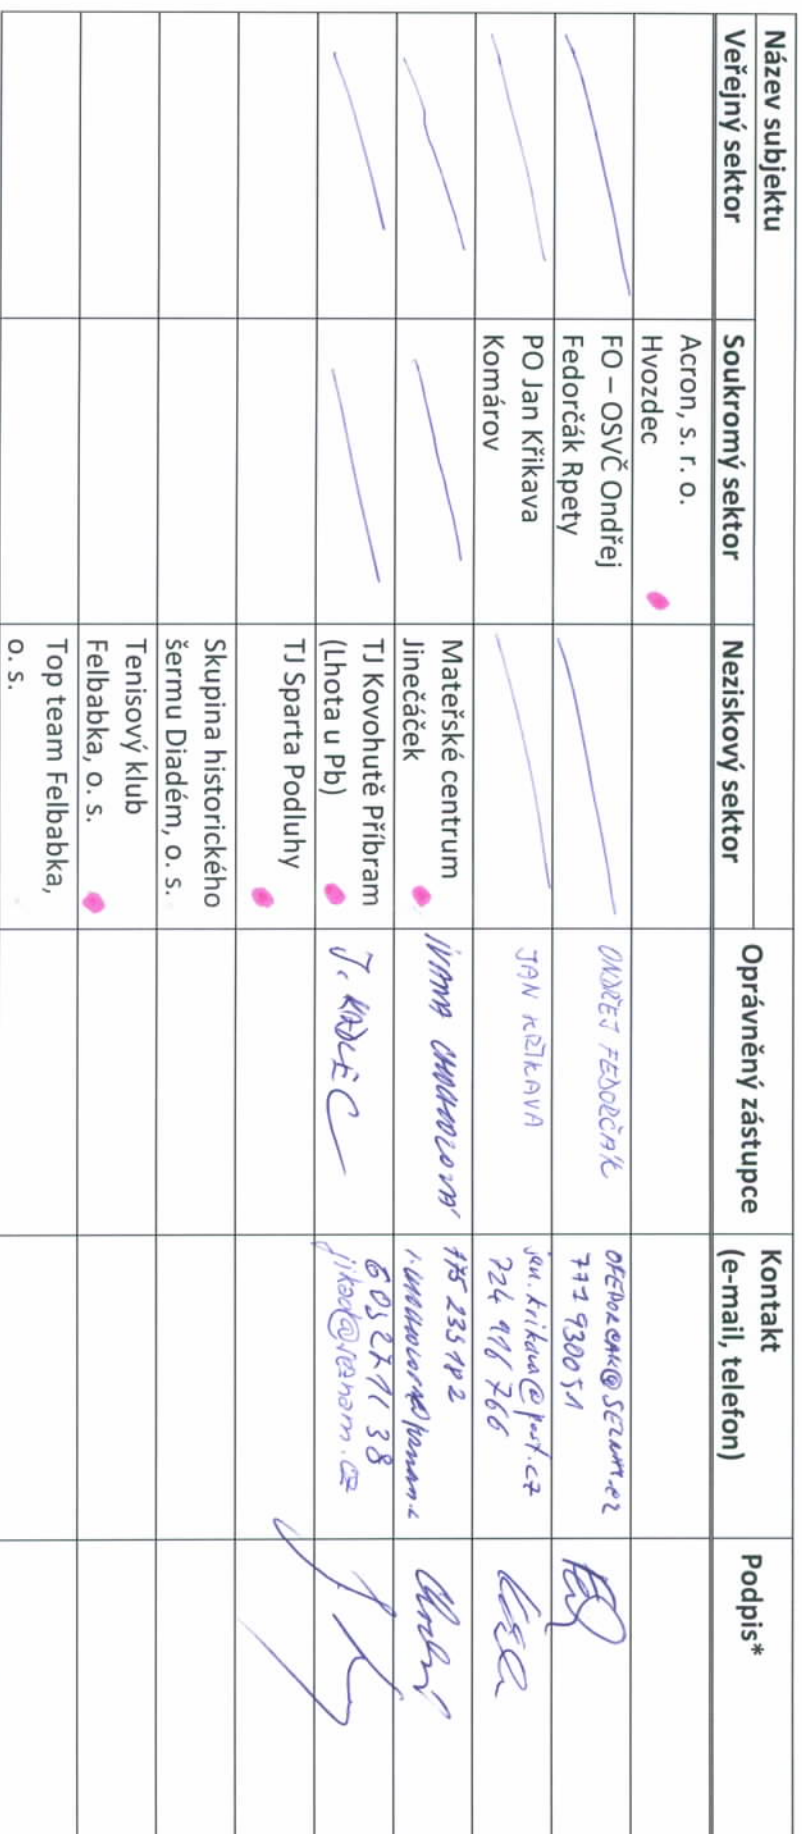 Název subjektu
Veřejný sektor
Soukromý sektor
Neziskový sektor
Oprávněný zástupce
Kontakt
(e-mail, telefon)
Podpis*
Acron, s. r. o.
Hvozdec
FO – OSVČ Ondřej
Fedorčák Rpety
ONDŘEJ FEDORČÁK
OFEDORCAK@SEZNAM.CZ
777 930051
PO Jan Křikava
Komárov
JAN KŘIKAVA
jan.krikava@post.cz
724 916 766
Mateřské centrum
Jinečáček
IVANA
775 235 182
TJ Kovohutě Příbram
(Lhota u Pb)
J. KADLEC
603271138
jikad@seznam.cz
TJ Sparta Podluhy
Skupina historického
šermu Diadém, o. s.
Tenisový klub
Felbabka, o. s.
Top team Felbabka,
o. s.